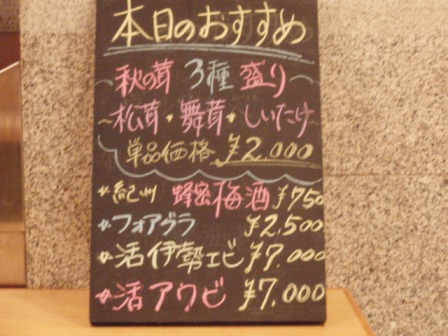 本日のおすすめ
秋の茸 3種 盛り
松茸・舞茸・しいたけ
単品価格 ¥2,000
紀州 蜂蜜梅酒 ¥750
フォアグラ ¥2,500
活伊勢エビ ¥7,000
活アワビ ¥7,000